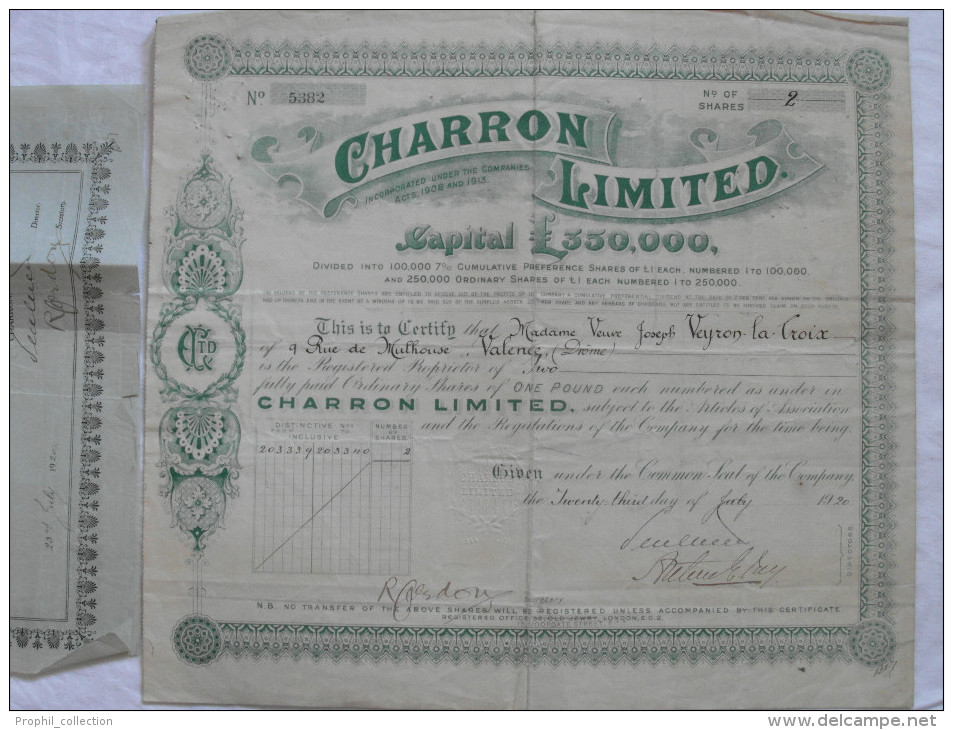 Nº 5382
Nº OF SHARES 2
CHARRON LIMITED.
INCORPORATED UNDER THE COMPANIES
ACTS, 1908 AND 1913.
Capital £350,000,
DIVIDED INTO 100,000 7% CUMULATIVE PREFERENCE SHARES OF £1 EACH, NUMBERED 1 TO 100,000.
AND 250,000 ORDINARY SHARES OF £1 EACH NUMBERED 1 TO 250,000.
This is to Certify that Madame Veuve Joseph Veyron-la-Croix
of 9 Rue de Mulhouse, Valence, (Drôme)
is the Registered Proprietor of Two
fully paid Ordinary Shares of ONE POUND each numbered as under in
CHARRON LIMITED, subject to the Articles of Association
and the Regulations of the Company for the time being.
DISTINCTIVE Nºs
FROM TO
INCLUSIVE
NUMBER OF SHARES
203339 203340 2
Given under the Common Seal of the Company
the Twenty third day of July 1920
DIRECTORS
Secretary
N.B. NO TRANSFER OF THE ABOVE SHARES WILL BE REGISTERED UNLESS ACCOMPANIED BY THIS CERTIFICATE
REGISTERED OFFICE OLD JEWRY, LONDON, E.C.2.
LTD
Director.
Secretary.
23rd July 1920
Prophil_collection
delcampe.net